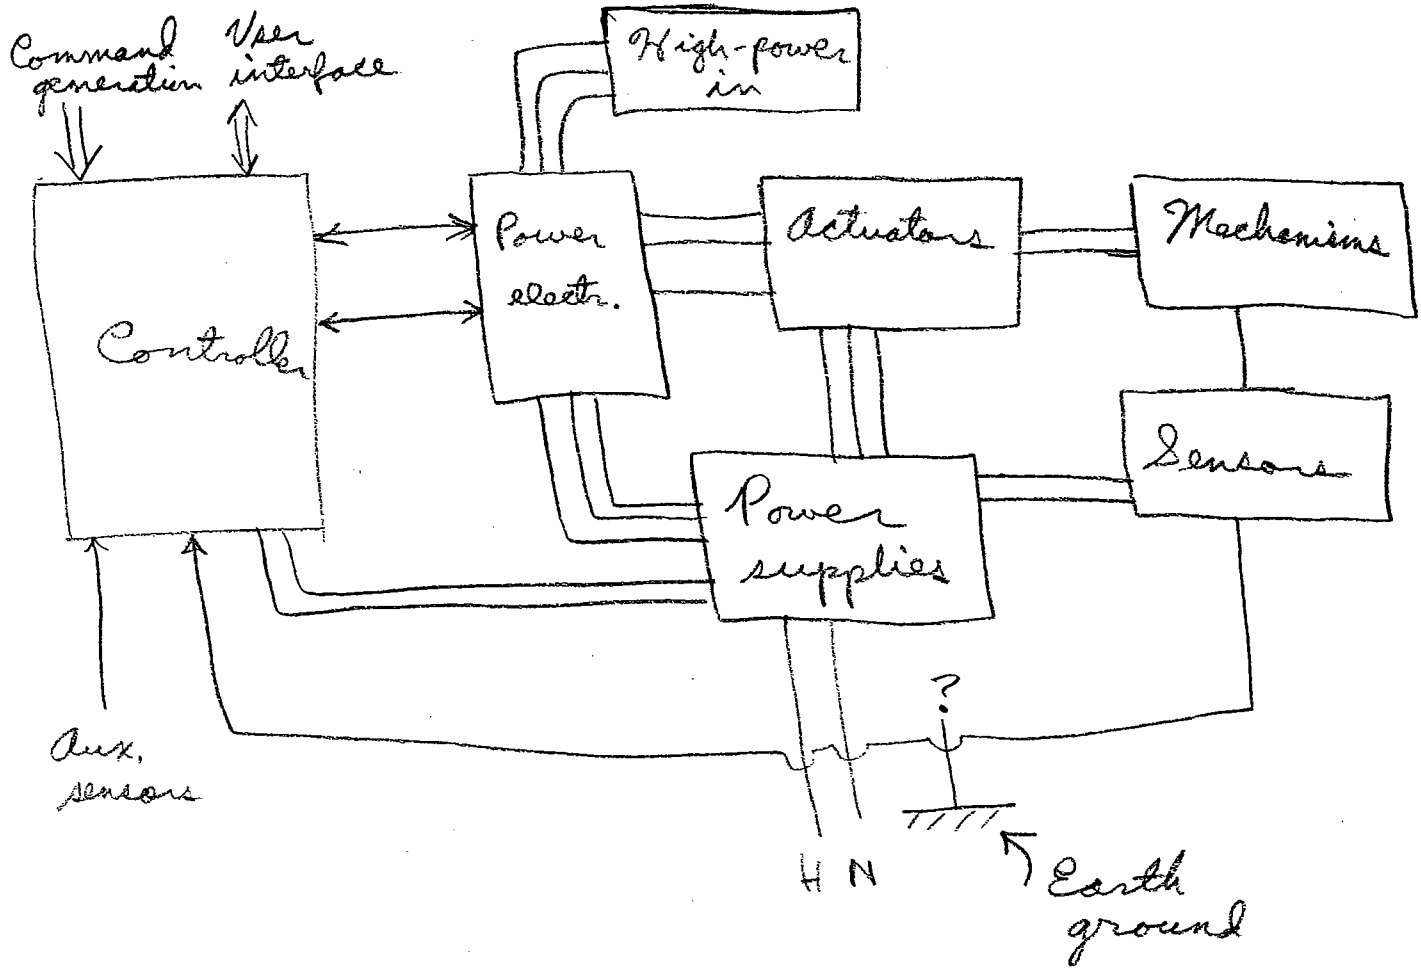 Command
generation
User
interface
High-power
in
Controller
Power
electr.
Actuators
Mechanisms
Sensors
Power
supplies
Aux.
sensors
?
H N
Earth
ground